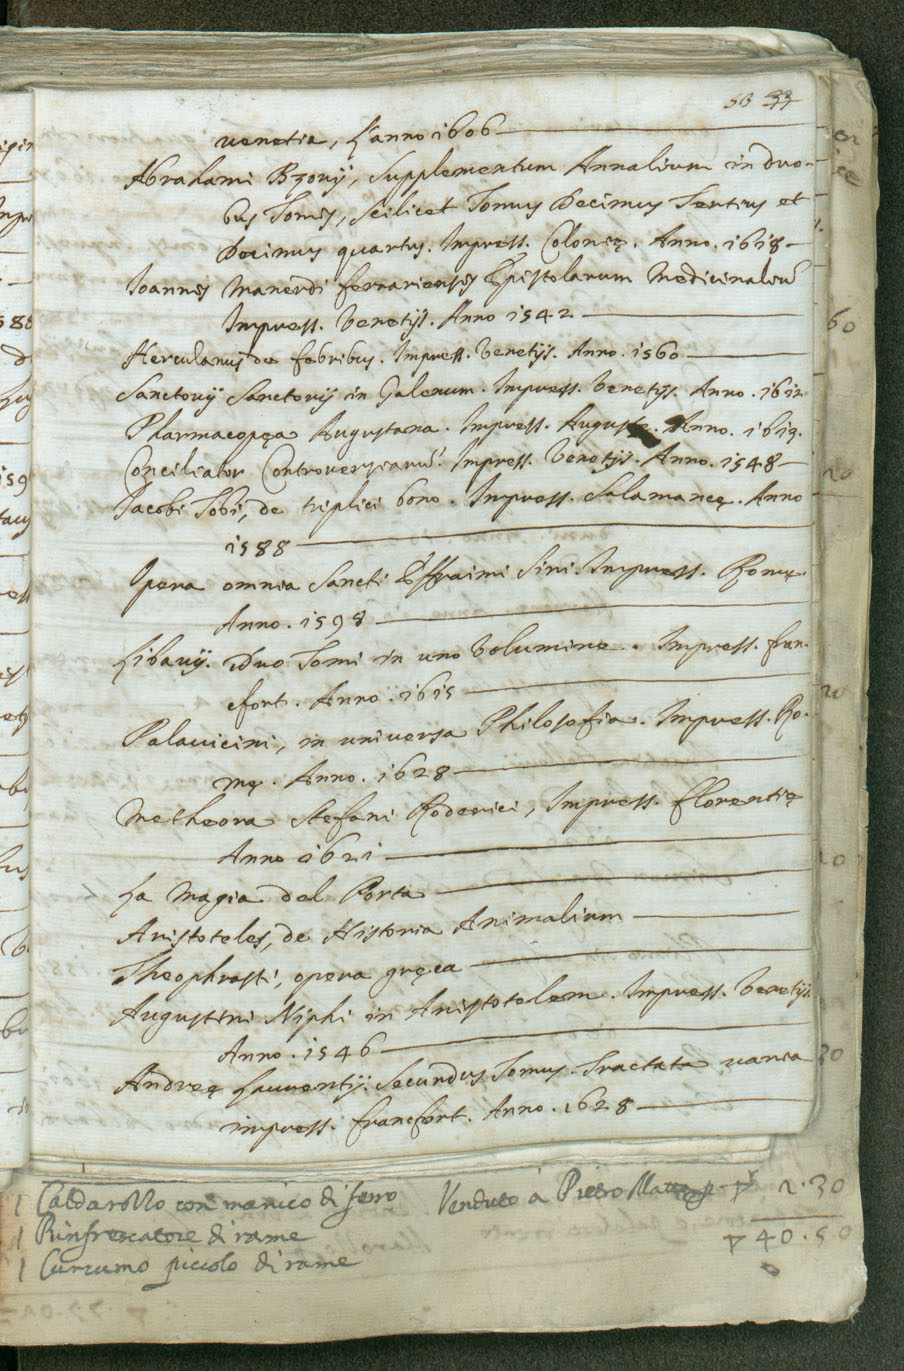 53 33
venetia, L'anno 1606
Abrahami Bzovij, Supplementum Annalium in duo-
bus Tomis, Scilicet Tomus Decimus Tertius et
Decimus quartus. Impress. Colonię. Anno. 1618
Ioannis Manerdi ferrariensis Epistolarum Medicinaliũ
Impress. Venetijs. Anno 1542
Herculanus de febribus. Impress. Venetijs. Anno. 1560
Sanctorij Sanctorij in Galenum. Impress. Venetijs. Anno. 1612
Pharmacopęa Augustana. Impress. Anno. 1619.
Conciliator Controversiarũ. Impress. Venetijs. Anno. 1548
Iacobi Tobi, de triplici bono. Impress. Salamancę. Anno
1588
Opera omnia Sancti Effraimi Siri. Impress. Romę.
Anno. 1598
Libavij. Duo Tomi in uno Volumine. Impress. fran-
cfort. Anno. 1615
Palavicini, in universa Philosofia. Impress. Ro-
mę. Anno. 1628
Metheora Stefani Roderici, Impress. florentię
Anno 1621
La Magia del Porta
Aristoteles, de Historia Animalium
Theophrasti, opera gręca
Augustini Niphi in Aristotelem. Impress. Venetijs.
Anno. 1546
Andreę Laurentij. Secundus Tomus. Tractata varia
impress. francfort. Anno. 1628
1 Caldarozzo con manico di ferro Venduto à Pietro 2.30
1 Rinfrescatore di rame 40.50
1 Cuccumo piccolo di rame
60
20
20
10
30